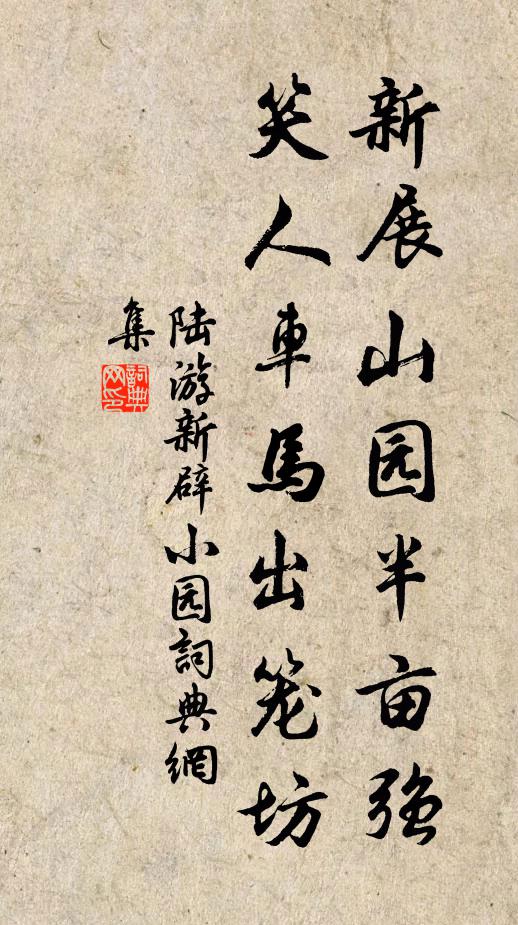 新展山园半亩强
笑人車馬出笼坊
陆游新辟小园詞典網
集
詞典
网印